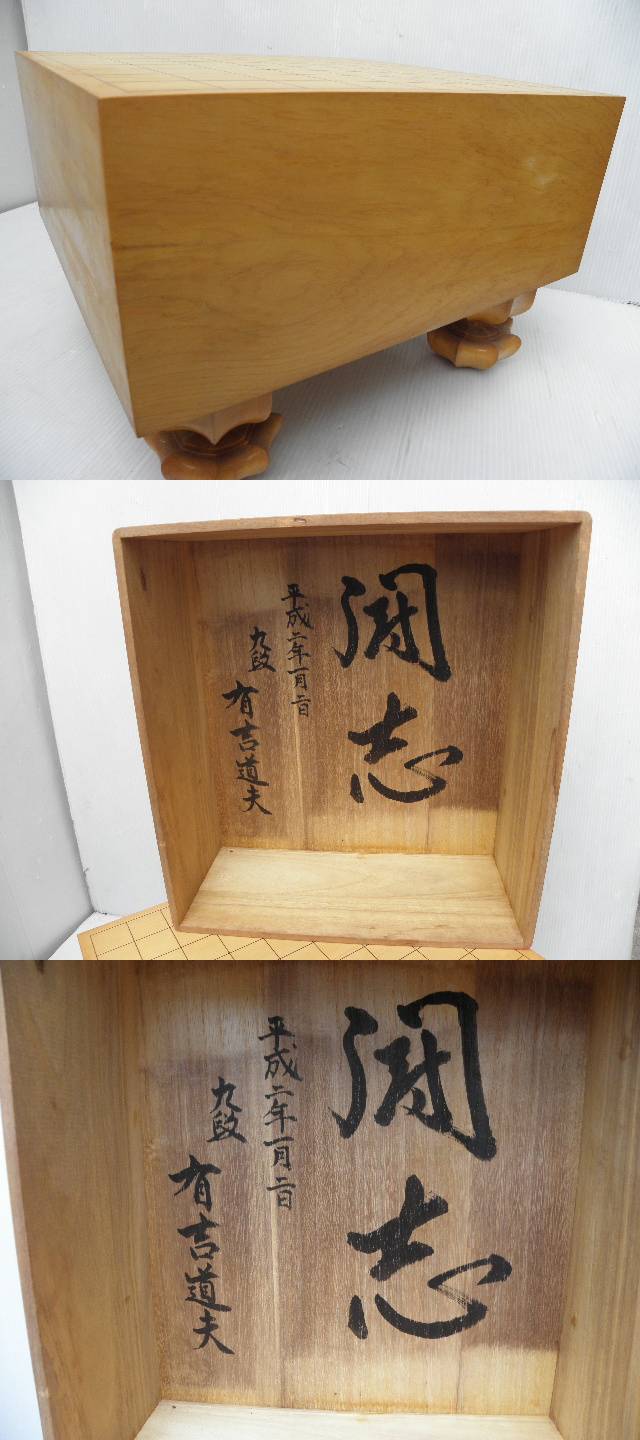 闘志
平成二年一月二日
九段
有吉道夫
闘志
平成二年一月二日
九段
有吉道夫